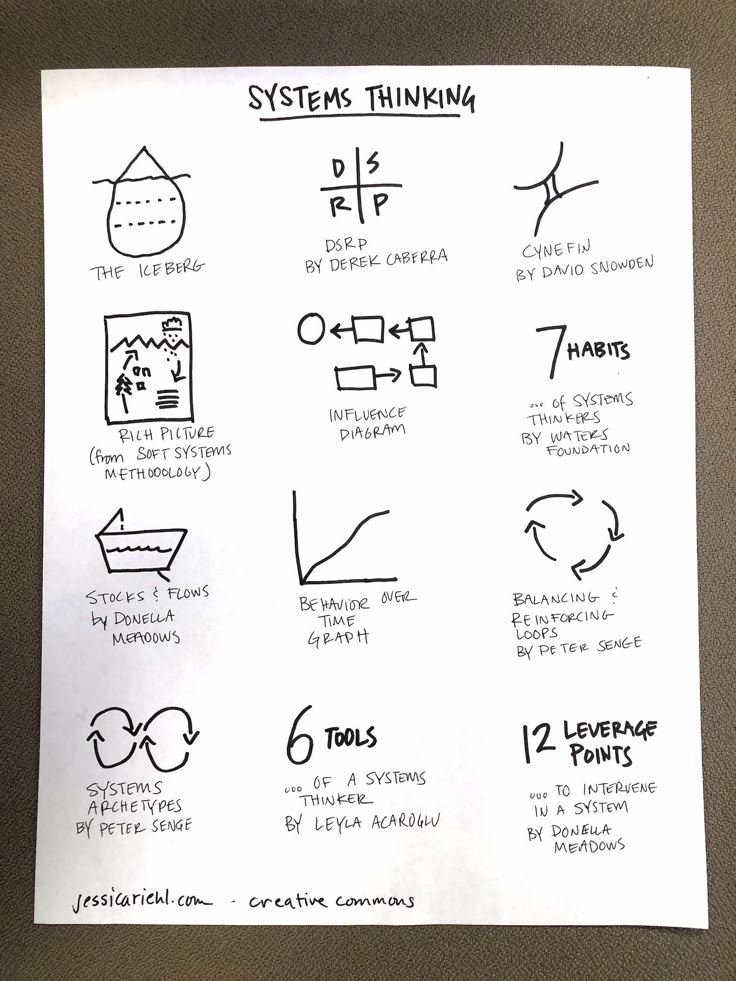 SYSTEMS THINKING
THE ICEBERG
D S
R P
DSRP
BY DEREK CABERRA
CYNEFIN
BY DAVID SNOWDEN
RICH PICTURE
(from SOFT SYSTEMS
METHODOLOGY)
INFLUENCE
DIAGRAM
7 HABITS
... of SYSTEMS
THINKERS
BY WATERS
FOUNDATION
STOCKS & FLOWS
by DONELLA
MEADOWS
BEHAVIOR OVER
TIME
GRAPH
BALANCING &
REINFORCING
LOOPS
BY PETER SENGE
SYSTEMS
ARCHETYPES
BY PETER SENGE
6 TOOLS
... OF A SYSTEMS
THINKER
BY LEYLA ACAROGLU
12 LEVERAGE
POINTS
... TO INTERVENE
IN A SYSTEM
BY DONELLA
MEADOWS
jessicariehl.com - creative commons